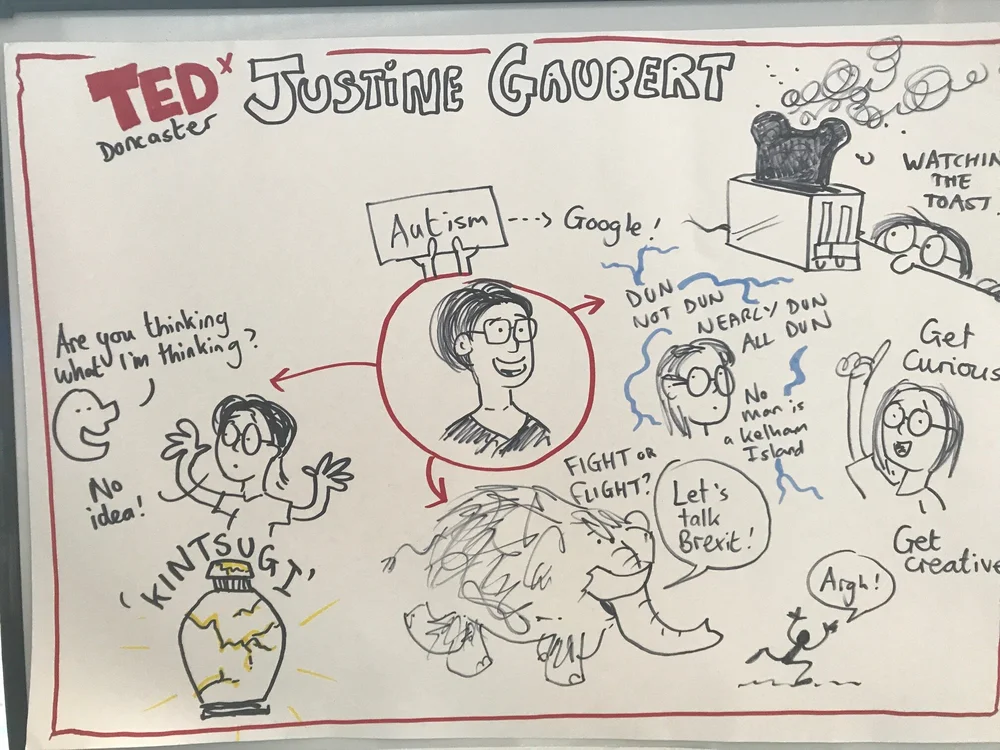 TEDx JUSTINE GAUBERT
Doncaster
WATCHIN
THE
TOAST
Autism ---> Google!
DUN
NOT DUN
NEARLY DUN
ALL DUN
No
man is
a Kelham
Island
Get
Curious
Are you thinking
what I'm thinking?
No
idea!
FIGHT OR
FLIGHT?
Let's
talk
Brexit!
Get
creative
Argh!
'KINTSUGI'